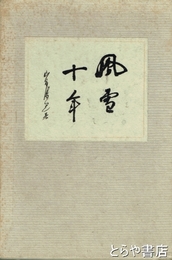 風雪
十年
とらや書店